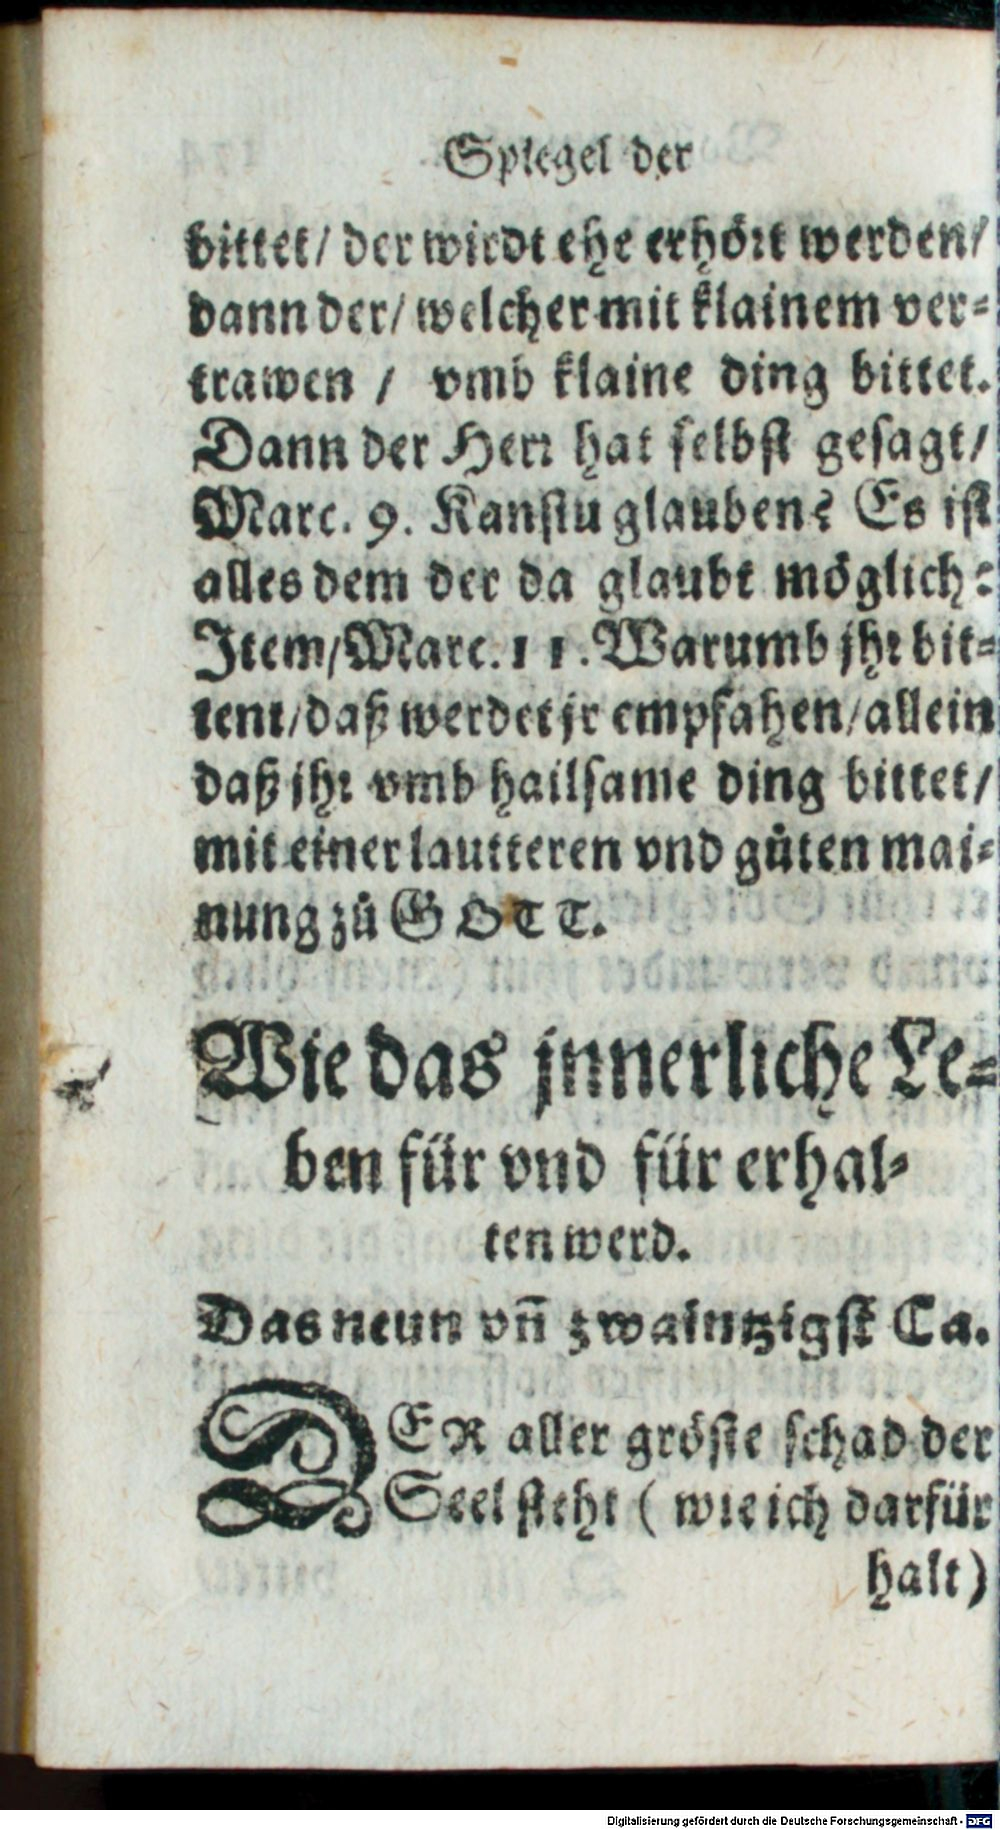 Spiegel der
bittet/ der wirdt ehe erhört werden/
dann der/ welcher mit klainem ver-
trawen / vmb klaine ding bittet.
Dann der Herr hat selbst gesagt/
Marc. 9. Kanstu glauben? Es ist
alles dem der da glaubt möglich:
Item/Marc. 11. Warumb jhr bit-
tent/daß werdet jr empfahen/allein
daß jhr vmb hailsame ding bittet/
mit einer lautteren vnd gůten mai-
nung zů GOTT.
Wie das jnnerliche Le-
ben für vnd für erhal-
ten werd.
Das neun vñ zwaintzigst Ca.
DER aller gröste schad der
Seel steht ( wie ich darfür
halt)
Digitalisierung gefördert durch die Deutsche Forschungsgemeinschaft - DFG